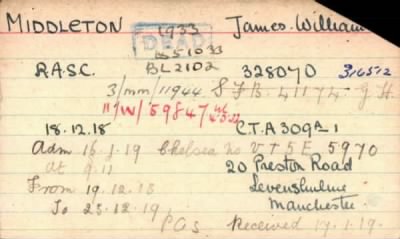 MIDDLETON 1933 James William
DEAD
BL2102
R.A.S.C. 328070 316512
3/mm/11944 S F B. 41174
11/W/59847
18.12.18 C.T.A 309
Adm 16.1.19 Chelsea no V T 5 E 5970
at 9.11 20 Preston Road
From 19.12.18 Levenshulme
To 23.12.19 Manchester
POs Received 17.1.19.